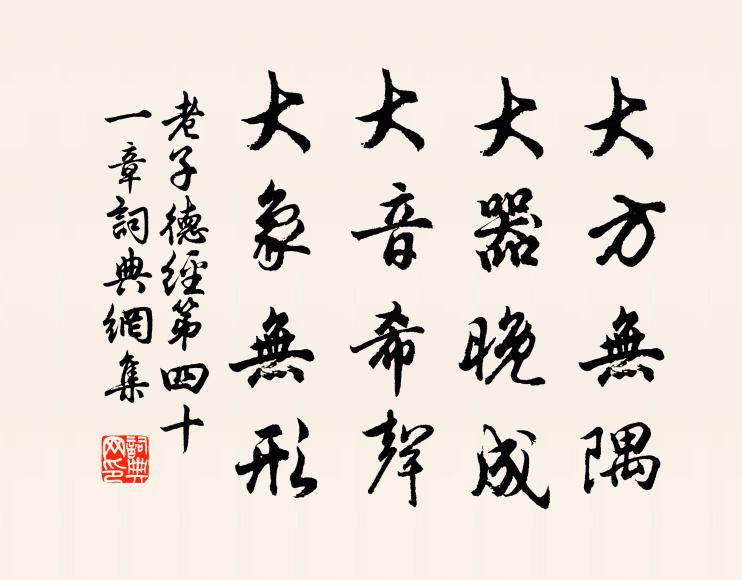 大方無隅
大器晚成
大音希聲
大象無形
老子德經第四十
一章詞典網集
詞典
网印